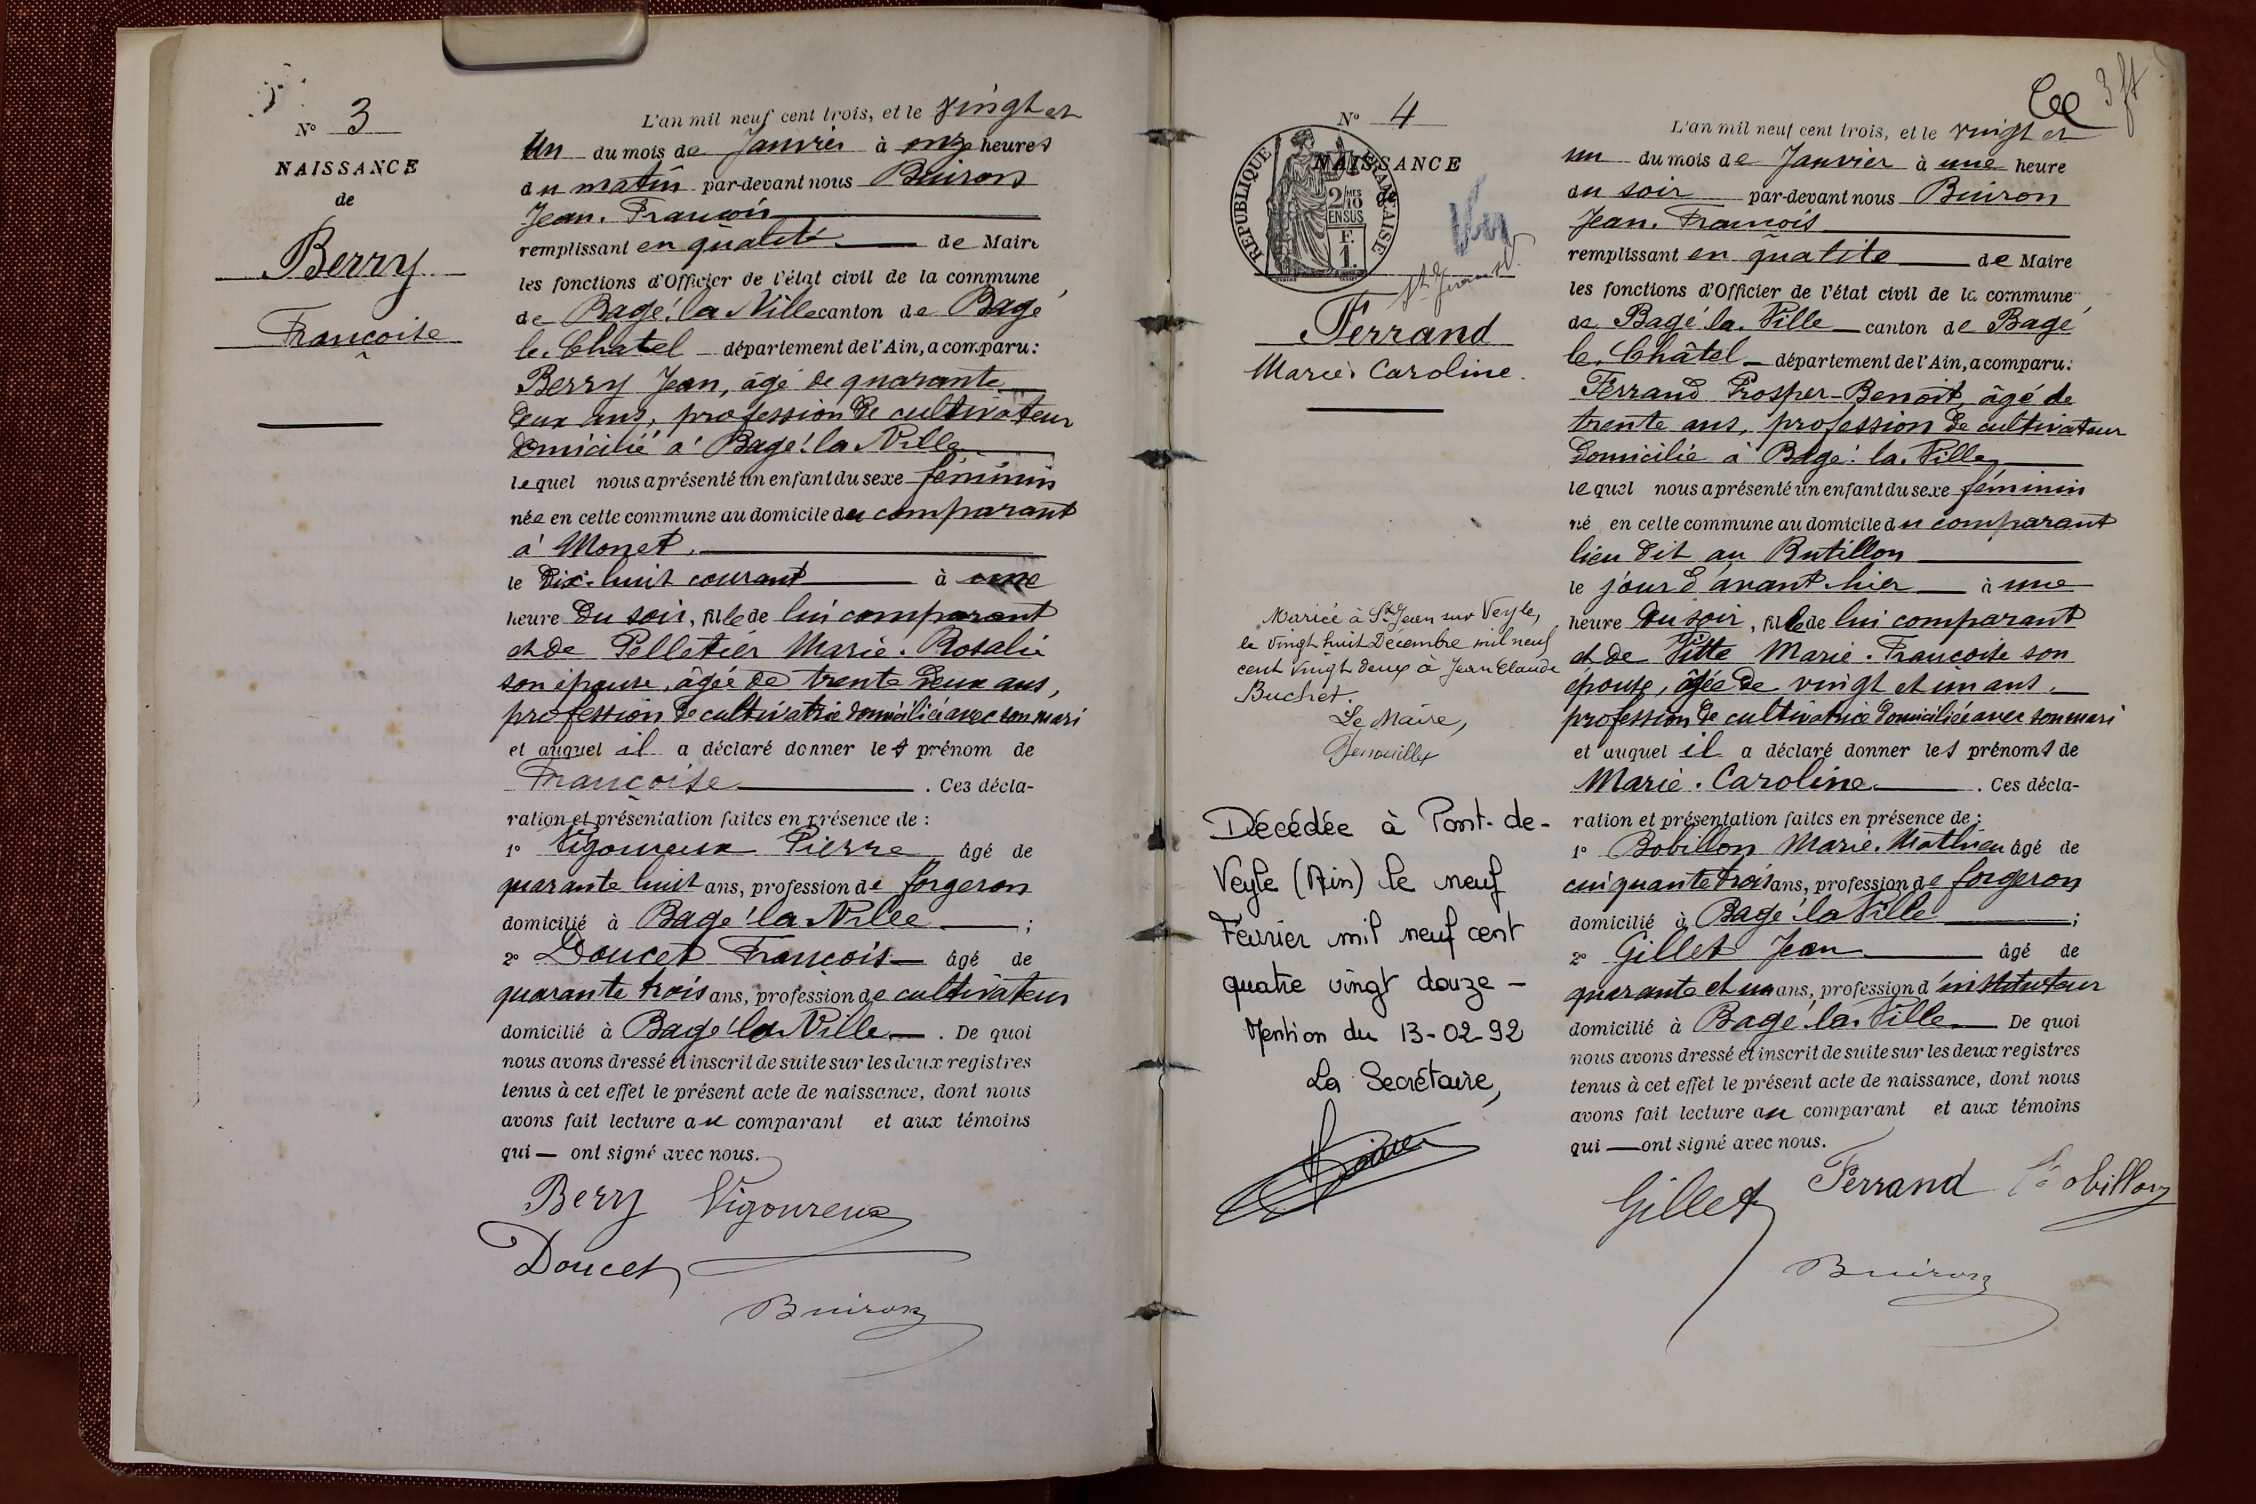 N° 3
NAISSANCE
de
Berry
Françoise
L'an mil neuf cent trois, et le vingt et
un du mois de Janvier à onze heures
du matin par-devant nous Buiron
Jean. François
remplissant en qualité de Maire
les fonctions d'Officier de l'état civil de la commune
de Bagé. la Ville canton de Bagé
le. Chatel département de l'Ain, a comparu:
Berry Jean, âgé de quarante
deux ans, profession de cultivateur
domicilié à Bagé. la Ville
lequel nous a présenté un enfant du sexe féminin
née en cette commune au domicile du comparant
à Monet.
le dix. huit courant à une
heure du soir, fille de lui comparant
et de Pelletier Marie. Rosalie
son épouse, âgée de trente deux ans,
profession de cultivatrice domiciliée avec son mari
et auquel il a déclaré donner les prénom de
Françoise. Ces décla-
ration et présentation faites en présence de :
1° Vigoureux Pierre âgé de
quarante huit ans, profession de forgeron
domicilié à Bagé la Ville ;
2° Doucet François âgé de
quarante trois ans, profession de cultivateur
domicilié à Bagé la Ville. De quoi
nous avons dressé et inscrit de suite sur les deux registres
tenus à cet effet le présent acte de naissance, dont nous
avons fait lecture au comparant et aux témoins
qui — ont signé avec nous.
Berry Vigoureux
Doucet
Buiron
3 ft
N° 4
NAISSANCE
de
REPUBLIQUE FRANÇAISE
2/10 MES
EN SUS
F.
1.
Vu
Ferrand
Marie. Caroline.
Mariée à St Jean sur Veyle,
le vingt huit Décembre mil neuf
cent vingt deux à Jean Claude
Buchet.
Le Maire,
Décédée à Pont-de-
Veyle (Ain) le neuf
Février mil neuf cent
quatre vingt douze —
Mention du 13-02-92
La Secrétaire,
L'an mil neuf cent trois, et le vingt et
un du mois de Janvier à une heure
du soir par-devant nous Buiron
Jean. François
remplissant en qualité de Maire
les fonctions d'Officier de l'état civil de la commune
de Bagé la. Ville canton de Bagé
le. Châtel département de l'Ain, a comparu:
Ferrand Prosper-Benoit, âgé de
trente ans, profession de cultivateur
domicilié à Bagé. la. Ville
lequel nous a présenté un enfant du sexe féminin
né en cette commune au domicile du comparant
lieu dit au Butillon
le jour d'avant. hier à une
heure du soir, fille de lui comparant
et de Vitte Marie. Françoise son
épouse, âgée de vingt et un ans.
profession de cultivatrice domiciliée avec son mari
et auquel il a déclaré donner les prénoms de
Marie. Caroline. Ces décla-
ration et présentation faites en présence de :
1° Bobillon Marie. Mathieu âgé de
cinquante trois ans, profession de forgeron
domicilié à Bagé la Ville ;
2° Gillet Jean âgé de
quarante et un ans, profession d'instituteur
domicilié à Bagé. la. Ville De quoi
nous avons dressé et inscrit de suite sur les deux registres
tenus à cet effet le présent acte de naissance, dont nous
avons fait lecture au comparant et aux témoins
qui — ont signé avec nous.
Gillet Ferrand Bobillon
Buiron